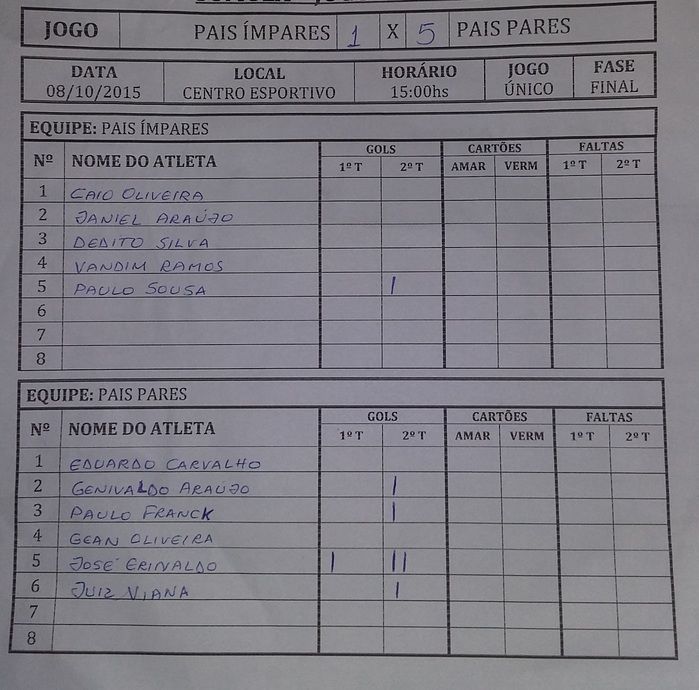 JOGO PAIS ÍMPARES 1 X 5 PAIS PARES
DATA LOCAL HORÁRIO JOGO FASE
08/10/2015 CENTRO ESPORTIVO 15:00hs ÚNICO FINAL
EQUIPE: PAIS ÍMPARES
Nº NOME DO ATLETA GOLS CARTÕES FALTAS
1º T 2º T AMAR VERM 1º T 2º T
1 CAIO OLIVEIRA
2 DANIEL ARAÚJO
3 DEDITO SILVA
4 VANDIM RAMOS
5 PAULO SOUSA |
6
7
8
EQUIPE: PAIS PARES
Nº NOME DO ATLETA GOLS CARTÕES FALTAS
1º T 2º T AMAR VERM 1º T 2º T
1 EDUARDO CARVALHO
2 GENIVALDO ARAUJO |
3 PAULO FRANCK |
4 GEAN OLIVEIRA
5 JOSÉ ERINALDO | ||
6 JUIZ VIANA |
7
8